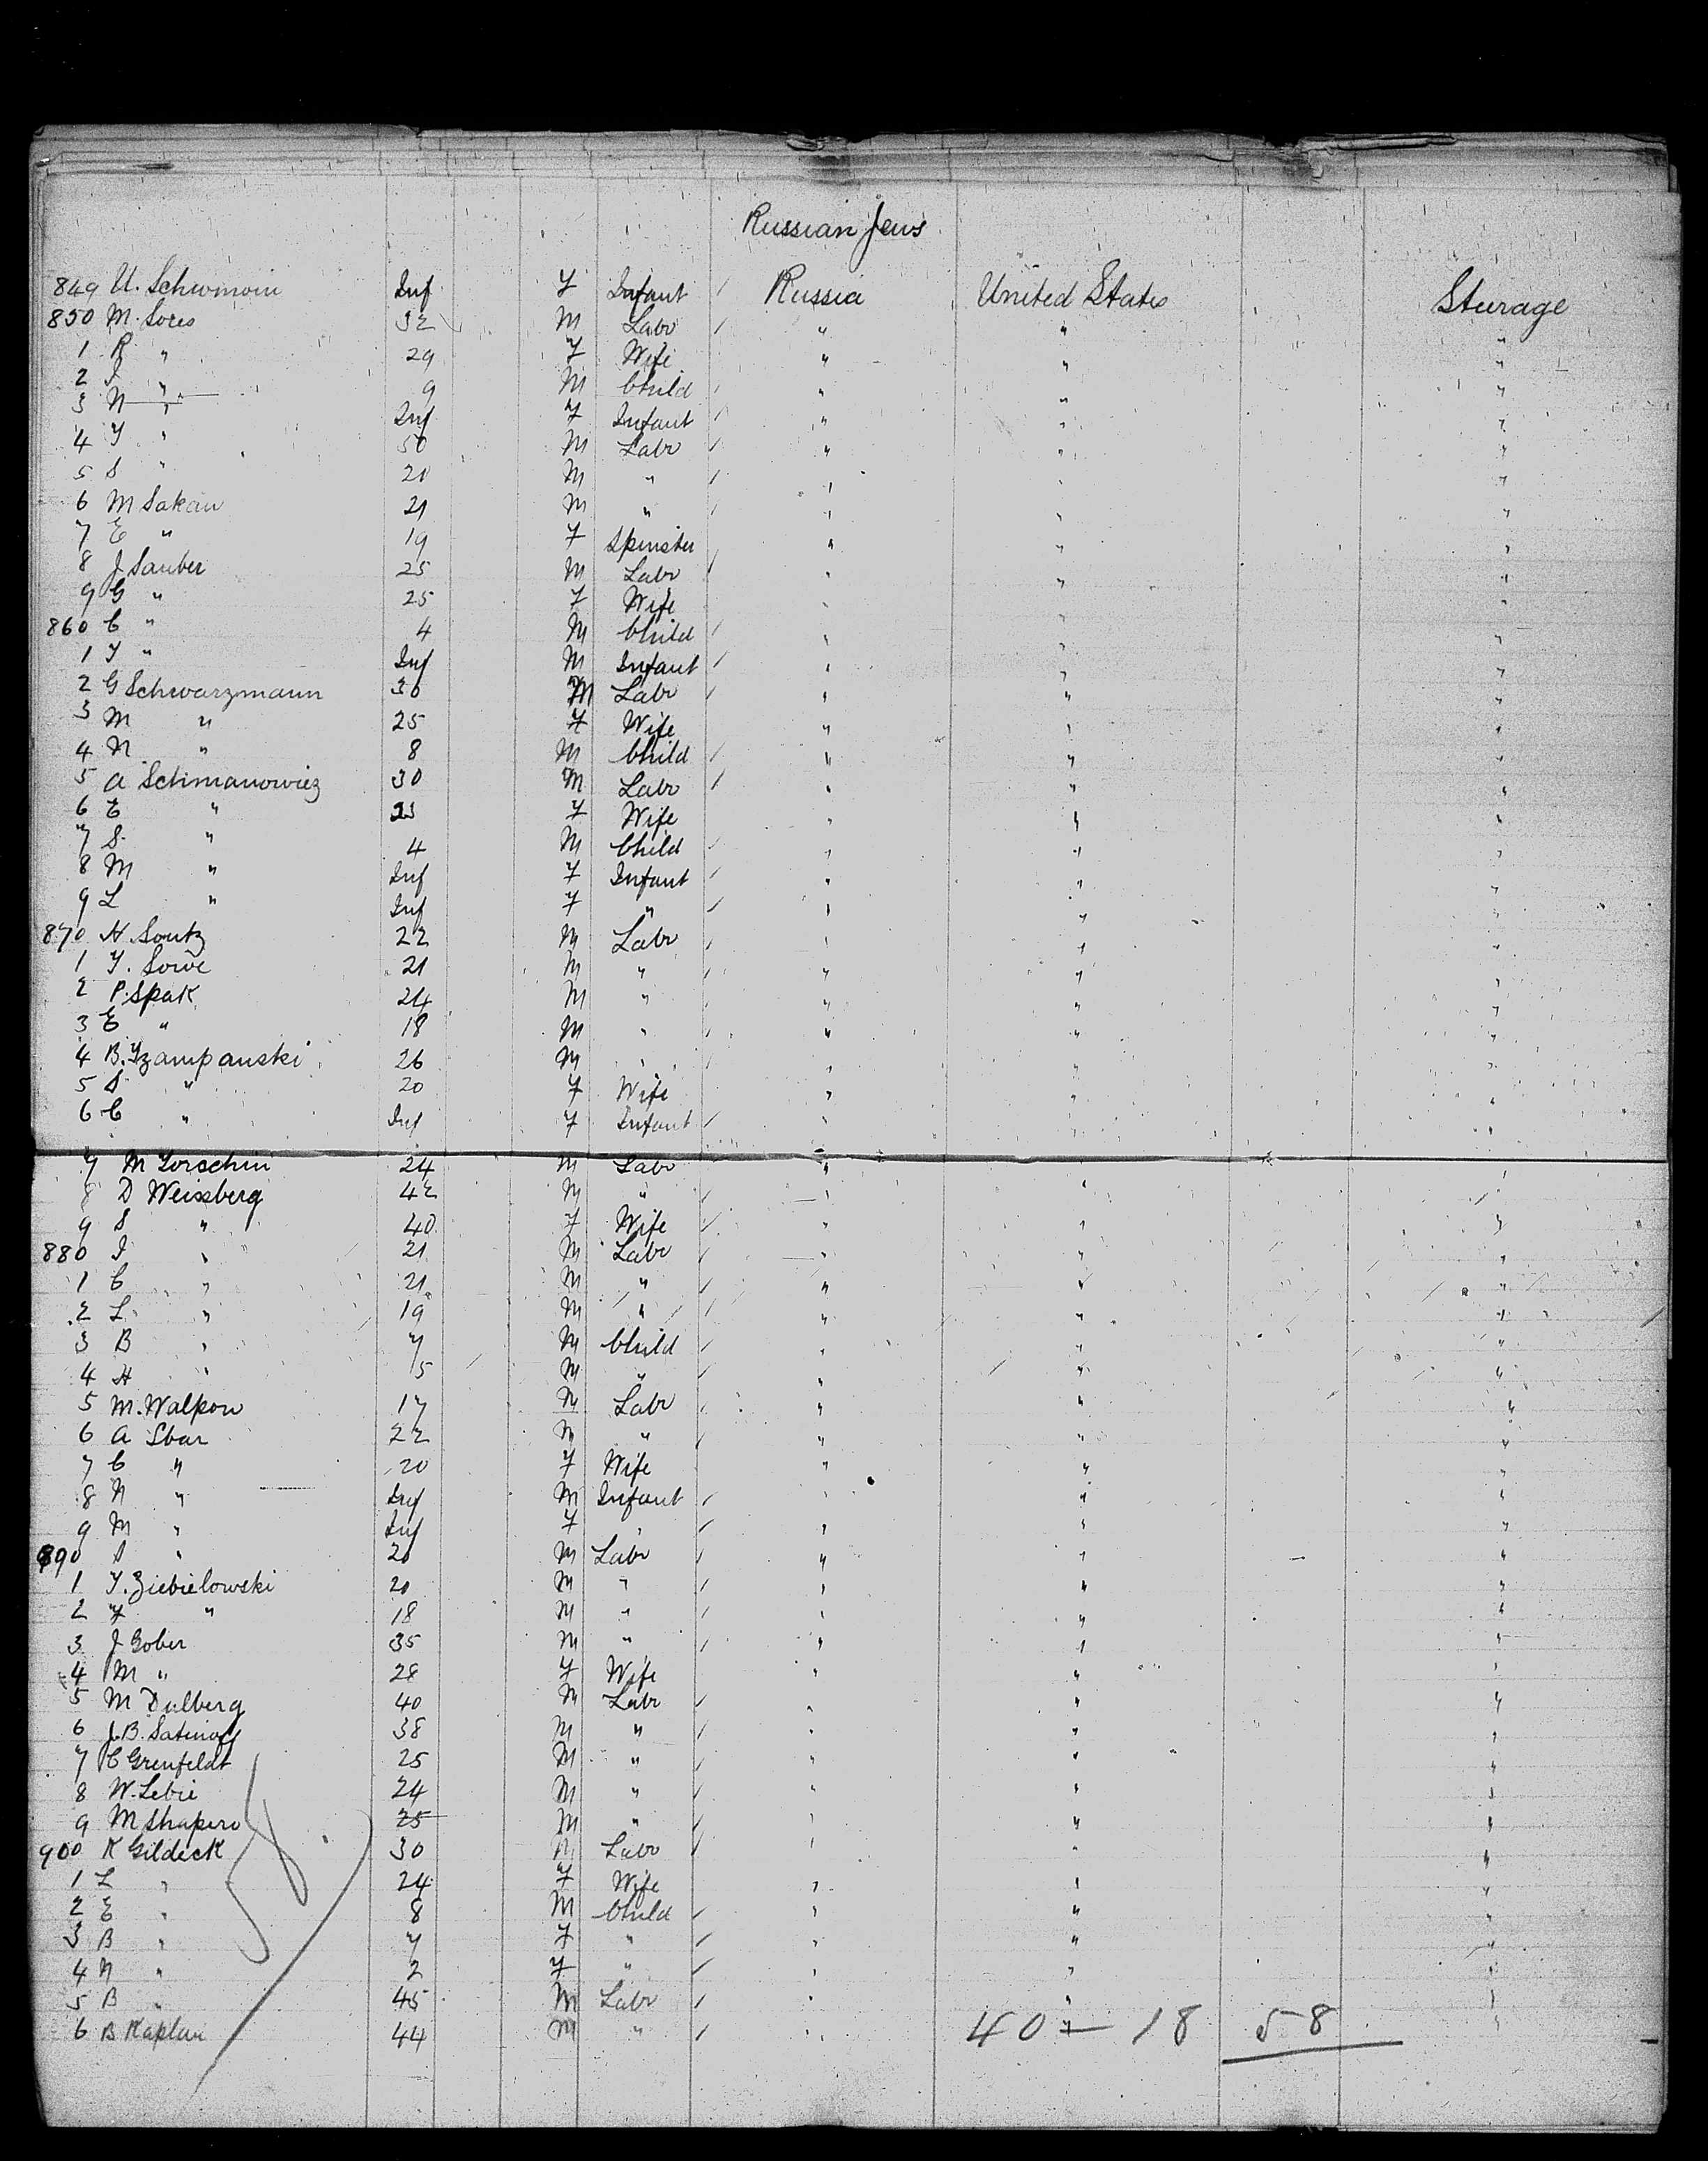 Russian Jews
849 U. Schwmoin Inf F Infant Russia United States Sturage
850 M. Sores 32 M Labr " " "
1 R " 29 F Wife " " "
2 I " 9 M Child " " "
3 N " Inf F Infant " " "
4 Y " 50 M Labr " " "
5 S " 20 M " " " "
6 M Sakan 21 M " " " "
7 E " 19 F Spinster " " "
8 J Sauber 25 M Labr " " "
9 G " 25 F Wife " " "
860 C " 4 M Child " " "
1 Y " Inf M Infant " " "
2 G Schwarzmann 30 M Labr " " "
3 M " 25 F Wife " " "
4 N " 8 M Child " " "
5 A Schmanowicz 30 M Labr " " "
6 E " 23 F Wife " " "
7 S " 4 M Child " " "
8 M " Inf F Infant " " "
9 L " Inf F " " " "
870 H. Soutz 22 M Labr " " "
1 Y. Sowe 21 M " " " "
2 P. Spak 24 M " " " "
3 E " 18 M " " " "
4 B. Izampanski 26 M " " " "
5 S " 20 F Wife " " "
6 C " Inf F Infant " " "
7 M Torschin 24 M Labr " " "
8 D Weissberg 42 M " " " "
9 S " 40 F Wife " " "
880 I " 21 M Labr " " "
1 C " 21 M " " " "
2 L " 19 M " " " "
3 B " 7 M Child " " "
4 H " 5 M " " " "
5 M. Walpow 17 M Labr " " "
6 A Sbar 22 M " " " "
7 C " 20 F Wife " " "
8 N " Inf M Infant " " "
9 M " Inf F " " " "
890 S " 20 M Labr " " "
1 Y. Ziebielowski 20 M " " " "
2 F " 18 M " " " "
3 J Gober 35 M " " " "
4 M " 28 F Wife " " "
5 M Dulberg 40 M Labr " " "
6 J.B. Satinoff 38 M " " " "
7 C Grenfeldt 25 M " " " "
8 W. Lebie 24 M " " " "
9 M Shapero 25 M " " " "
900 K Gildeck 30 M Labr " " "
1 L " 24 F Wife " " "
2 E " 8 M Child " " "
3 B " 7 F " " " "
4 N " 2 F " " " "
5 B " 45 M Labr " " "
6 B Kaplan 44 M " " " "
40 — 18 58